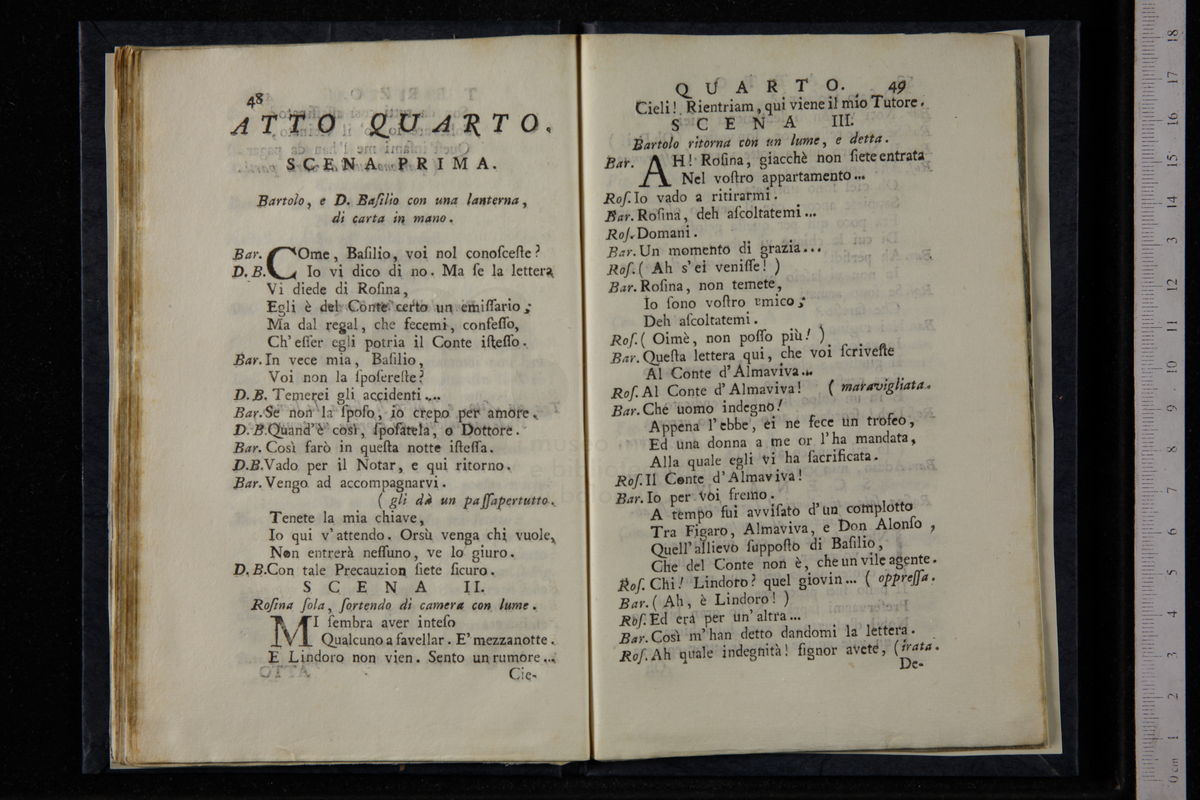 48
ATTO QUARTO.
SCENA PRIMA.
Bartolo, e D. Baſilio con una lanterna,
di carta in mano.
Bar. COme, Baſilio, voi nol conoſceſte?
D. B. Io vi dico di no. Ma ſe la lettera
Vi diede di Roſina,
Egli è del Conte certo un emiſſario;
Ma dal regal, che fecemi, confeſſo,
Ch' eſſer egli potria il Conte iſteſſo.
Bar. In vece mia, Baſilio,
Voi non la ſpoſereſte?
D. B. Temerei gli accidenti....
Bar. Se non la ſpoſo, io crepo per amore.
D. B. Quand'è così, ſpoſatela, o Dottore.
Bar. Così farò in queſta notte iſteſſa.
D.B. Vado per il Notar, e qui ritorno.
Bar. Vengo ad accompagnarvi.
( gli dà un paſſapertutto.
Tenete la mia chiave,
Io qui v'attendo. Orsù venga chi vuole,
Non entrerà neſſuno, ve lo giuro.
D. B. Con tale Precauzion ſiete ſicuro.
SCENA II.
Roſina ſola, ſortendo di camera con lume.
MI ſembra aver inteſo
Qualcuno a favellar. E' mezzanotte.
E Lindoro non vien. Sento un rumore...
Cie-
QUARTO. 49
Cieli! Rientriam, qui viene il mio Tutore.
SCENA III.
Bartolo ritorna con un lume, e detta.
Bar. AH! Roſina, giacchè non ſiete entrata
Nel voſtro appartamento...
Roſ. Io vado a ritirarmi.
Bar. Roſina, deh aſcoltatemi...
Roſ. Domani.
Bar. Un momento di grazia...
Roſ. ( Ah s'ei veniſſe! )
Bar. Roſina, non temete,
Io ſono voſtro amico;
Deh aſcoltatemi.
Roſ. ( Oimè, non poſſo più! )
Bar. Queſta lettera qui, che voi ſcriveſte
Al Conte d'Almaviva...
Roſ. Al Conte d'Almaviva! ( maravigliata.
Bar. Che uomo indegno!
Appena l'ebbe, ei ne fece un trofeo,
Ed una donna a me or l'ha mandata,
Alla quale egli vi ha ſacrificata.
Roſ. Il Conte d'Almaviva!
Bar. Io per voi fremo.
A tempo fui avviſato d'un complotto
Tra Figaro, Almaviva, e Don Alonſo,
Quell'allievo ſuppoſto di Baſilio,
Che del Conte non è, che un vile agente.
Roſ. Chi! Lindoro? quel giovin... ( oppreſſa.
Bar. ( Ah, è Lindoro! )
Roſ. Ed era per un'altra...
Bar. Così m'han detto dandomi la lettera.
Roſ. Ah quale indegnità! ſignor avete, (irata.
De-